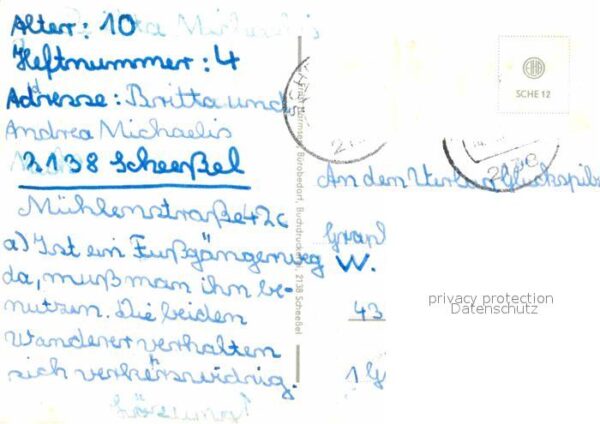 Alter: 10
Heftnummer: 4
Adresse: Britta und
Andrea Michaelis
2138 Scheeßel
Mühlenstraße 42c
a) Ist ein Fußgängerweg
da, muß man ihn be-
nutzen. Die beiden
Wanderer verhalten
sich verkerswidrig.
Lösung
Buchdruckerei, 2138 Scheeßel
SCHE 12
An den
W.
43
privacy protection
Datenschutz